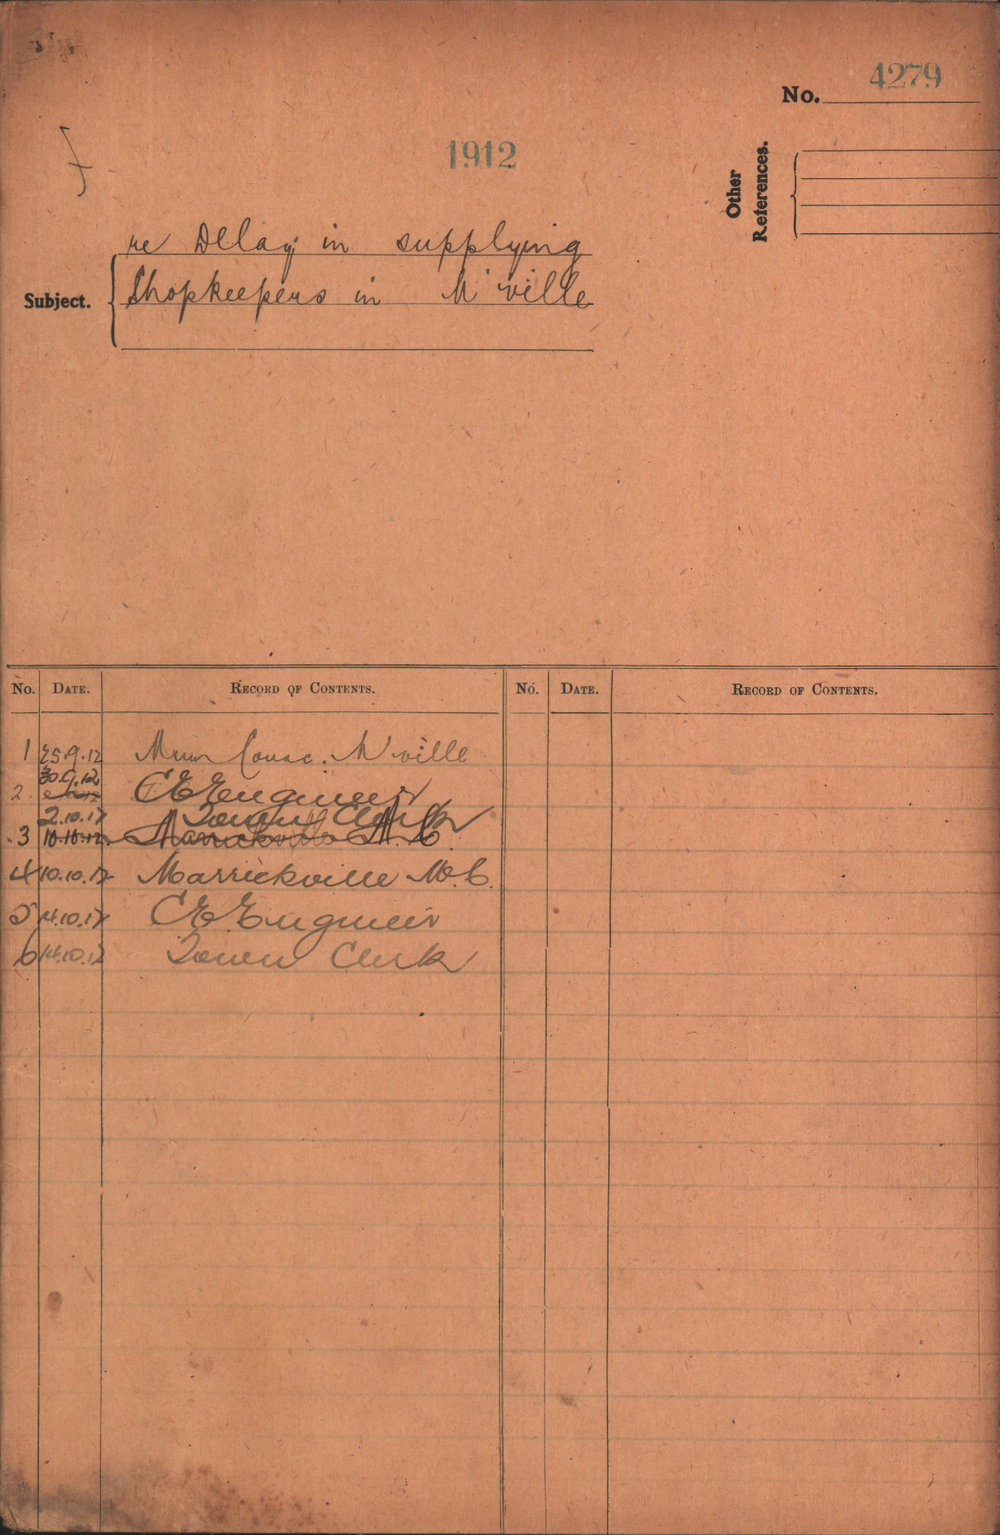 No. 4279
1912
Other
References.
re Delay in supplying
Subject. Shopkeepers in M'ville
No. DATE. RECORD OF CONTENTS. No. DATE. RECORD OF CONTENTS.
1 25.9.12 Mun Counc. M'ville
30.9.12
2 C E Engineer
2.10.12 Town Clerk
3 10.10.12 Marrickville M.C.
4 10.10.12 Marrickville M.C.
5 14.10.12 C E Engineer
6 14.10.12 Town Clerk